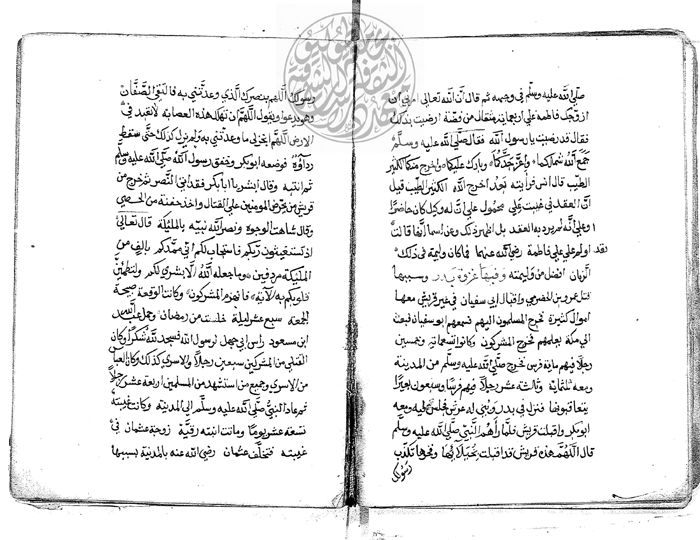 صلى الله عليه وسلم في وجهه ثم قال ان الله تعالى امرني ان
ازوجك فاطمة على اربعماية مثقال من فضة ارضيت بذلك
فقال قد رضيت يا رسول الله فقال صلى الله عليه وسلم
جمع الله شملكما واعز جدكما وبارك عليكما واخرج منكما الكثير
الطيب قال انس فوالله لقد اخرج الله الكثير الطيب قيل
ان العقد في غيبت علي محمول على انه له وكيل كان حاضرا
او على انه لم يرد به العقد بل اظهر ذلك وعن اسما انها قالت
لقد اولم علي على فاطمة رضي الله عنها فما كان وليمة في ذلك
الزمان افضل من وليمته وفيها غزوة بدر وسببها
قتل عمرو بن الحضرمي واقبال ابي سفيان في عير قريش معها
اموال كثيرة فخرج المسلمون اليهم فسمعهم ابو سفيان فبعث
الى مكة يعلمهم فخرج المشركون وكانوا تسعماية وخمسين
رجلا فيهم ماية فرس فخرج صلى الله عليه وسلم من المدينة
ومعه ثلثماية وثلاثة عشر رجلا فيهم فرسا وسبعون بعيرا
يتعاقبونها فنزل في بدر وبني له عريش فجلس فيه ومعه
ابو بكر واقبلت قريش فلما راهم النبي صلى الله عليه وسلم
قال اللهم هذه قريش قد اقبلت بخيلائها وفخرها تكذب
رسولك
رسولك اللهم بنصرك الذي وعدتني به فالتقى الصفان
وهو يدعوا ويقول اللهم ان تهلك هذه العصابه لا تعبد في
الارض اللهم انجز لي ما وعدتني به ولم يزل كذلك حتى سقط
رداؤه فوضعه ابو بكر وخفق رسول الله صلى الله عليه وسلم
ثم انتبه وقال ابشر يا ابا بكر فقد اتى النصر ثم خرج من
العريش يحرض المومنين على القتال واخذ حفنة من الحصى
وقال شاهت الوجوه ونصر الله نبيه بالملئكة قال تعالى
اذ تستغيثون ربكم فاستجاب لكم اني ممدكم بالف من
الملئيكة مردفين وما جعله الله الا بشرى لكم ولتطمئن
قلوبكم به الآية فانهزم المشركون وكانت الوقعة صبيحة
الجمعة سبع عشر ليلة خلت من رمضان وحمل عبد الله
ابن مسعود راس ابي جهل لرسول الله فسجد لله شكرا وكان
القتلى من المشركين سبعين رجلا والاسرى كذلك وكان العباس
من الاسرى وجميع من استشهد من المسلمين اربعة عشر رجلا
ثم عاد النبي صلى الله عليه وسلم الى المدينة وكانت غيبته
تسعة عشر يوما وماتت ابنته رقية زوجة عثمان في
غيبته فتخلف عثمان رضي الله عنه بالمدينة بسببها